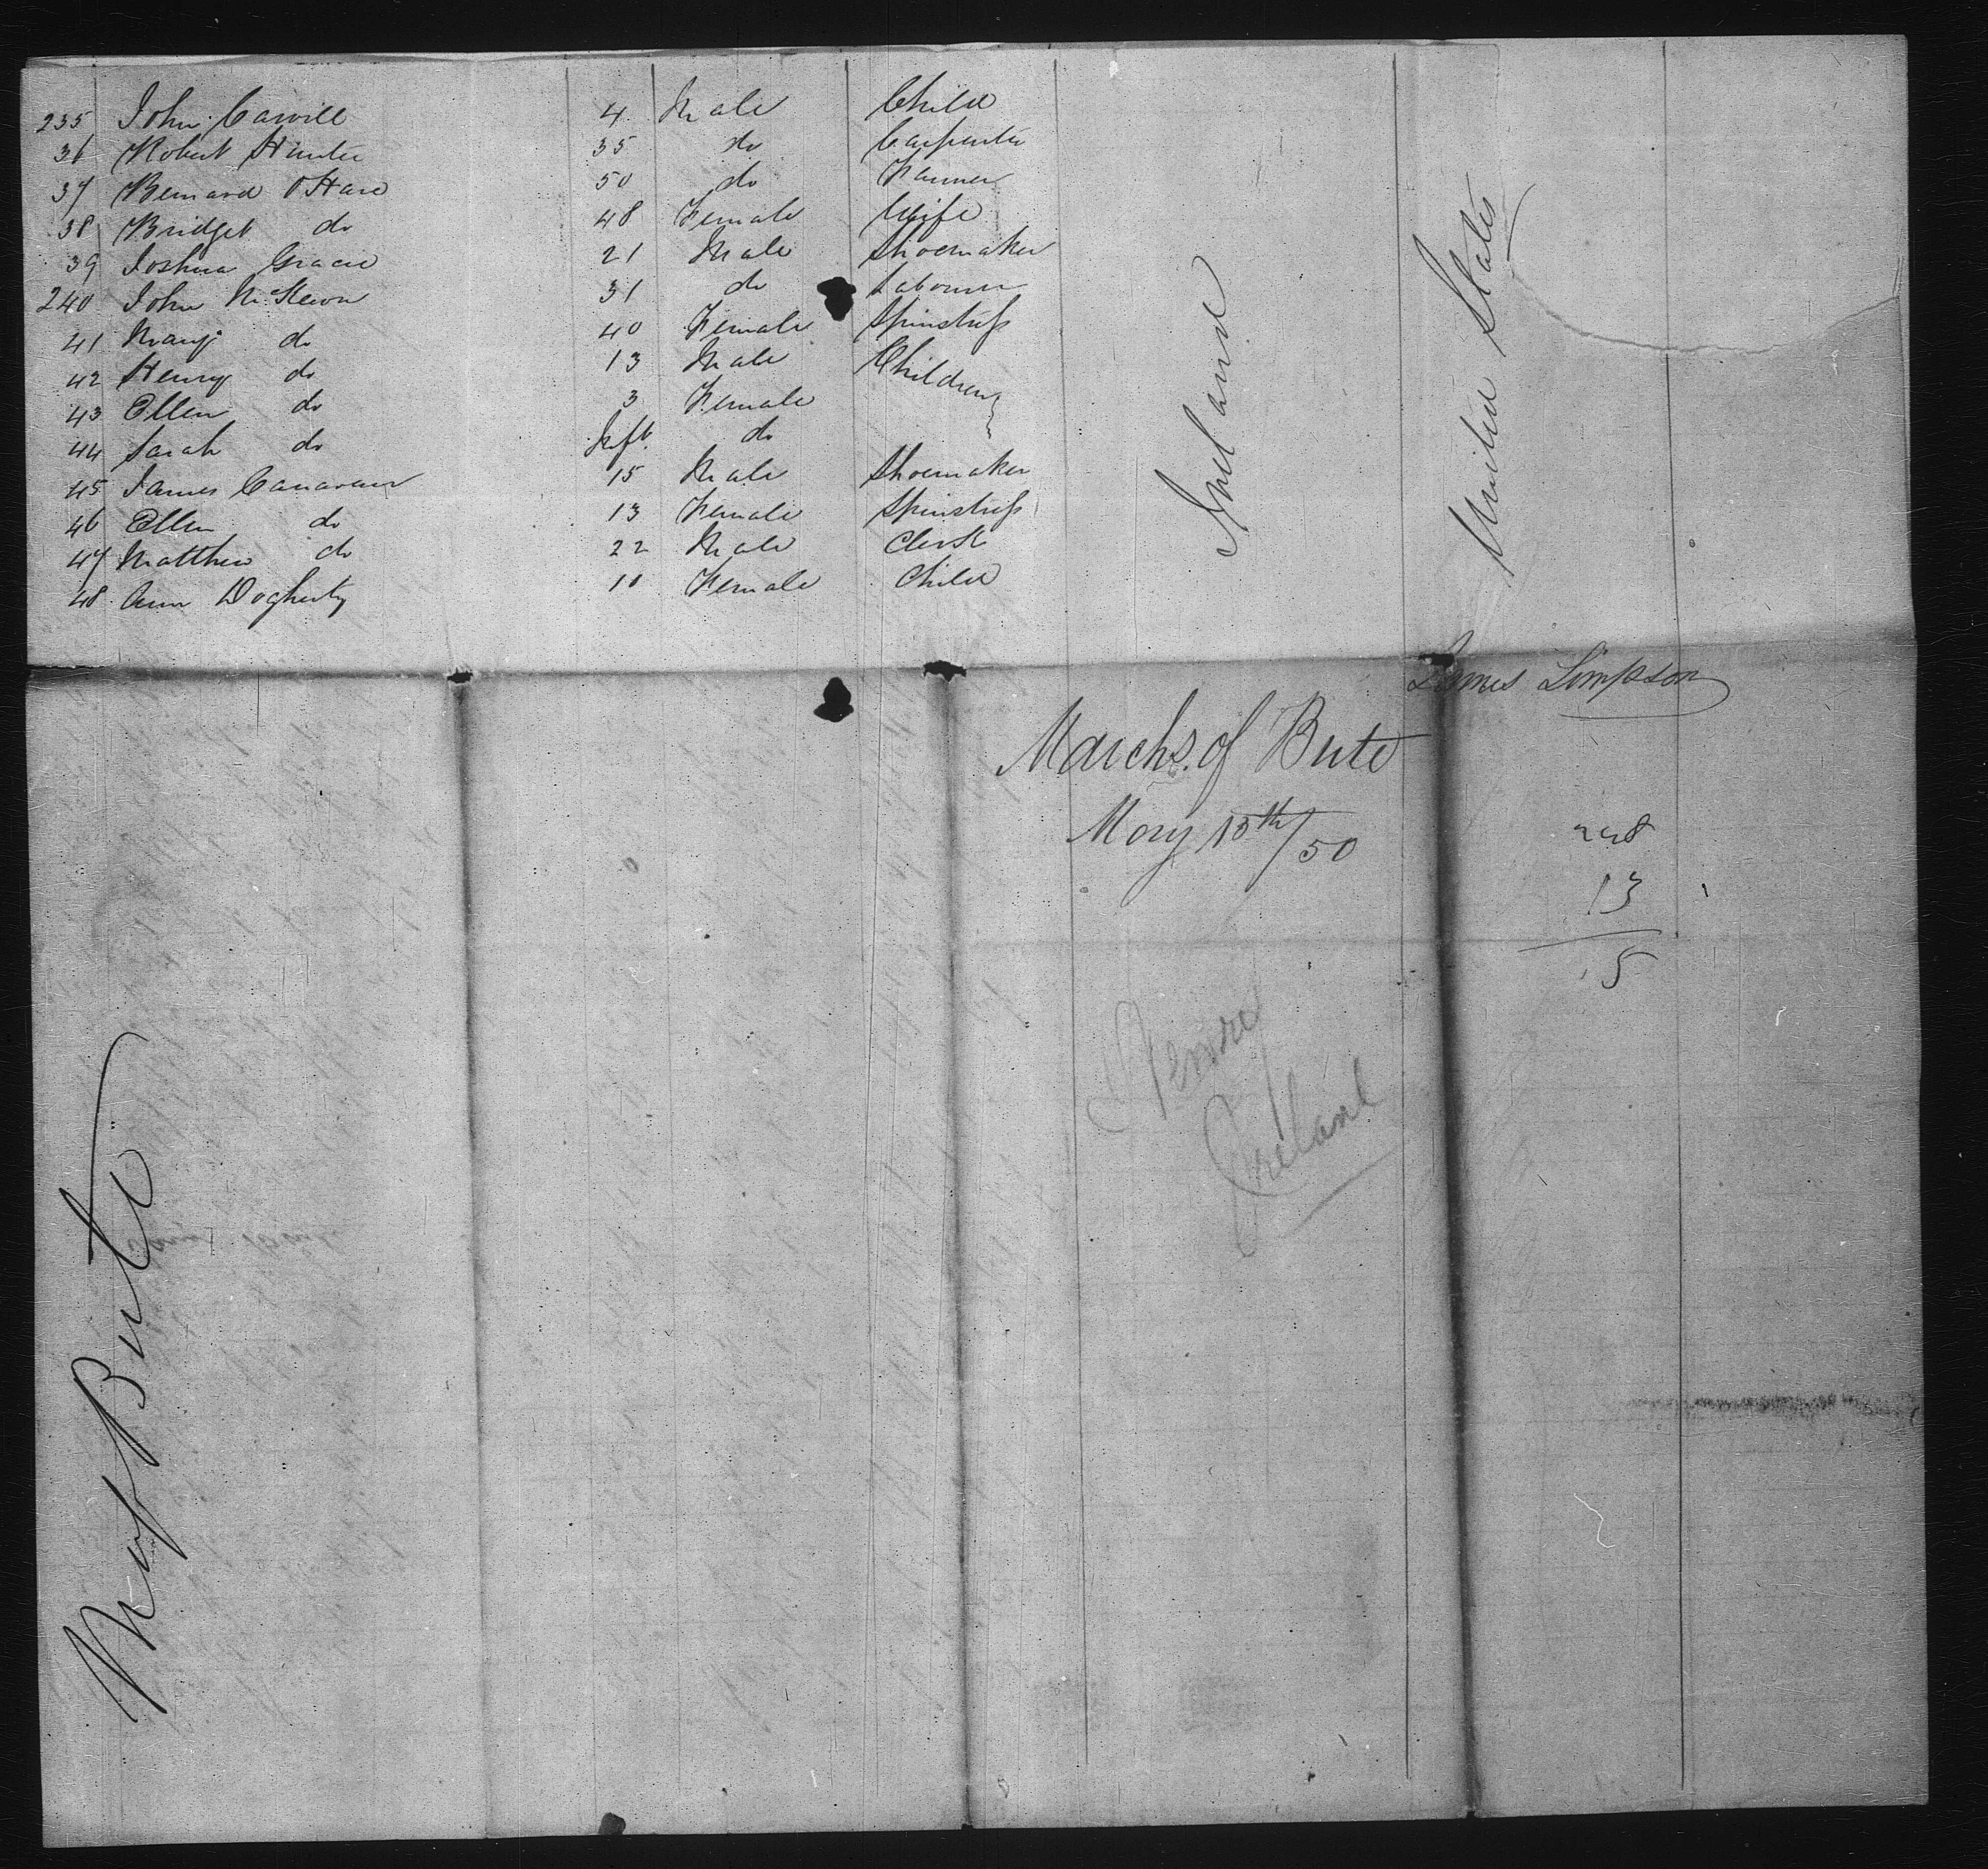 235 John Carvill 4 Male Child
36 Robert Hunter 35 do Carpenter
37 Bernard O Hare 50 do Farmer
38 Bridget do 48 Female Wife
39 Joshua Gracie 21 Male Shoemaker
240 John McKeown 31 do Labourer
41 Mary do 40 Female Spinstress
42 Henry do 13 Male Children
43 Ellen do 3 Female
44 Sarah do Inft. do
45 James Canavan 15 Male Shoemaker
46 Ellen do 13 Female Spinstress
47 Matthew do 22 Male Clerk
48 Ann Dogherty 11 Female Child
Ireland
United States
James Simpson
Marchs. of Bute
May 13th/50
248
13
5
Newry
Ireland
M of Bute